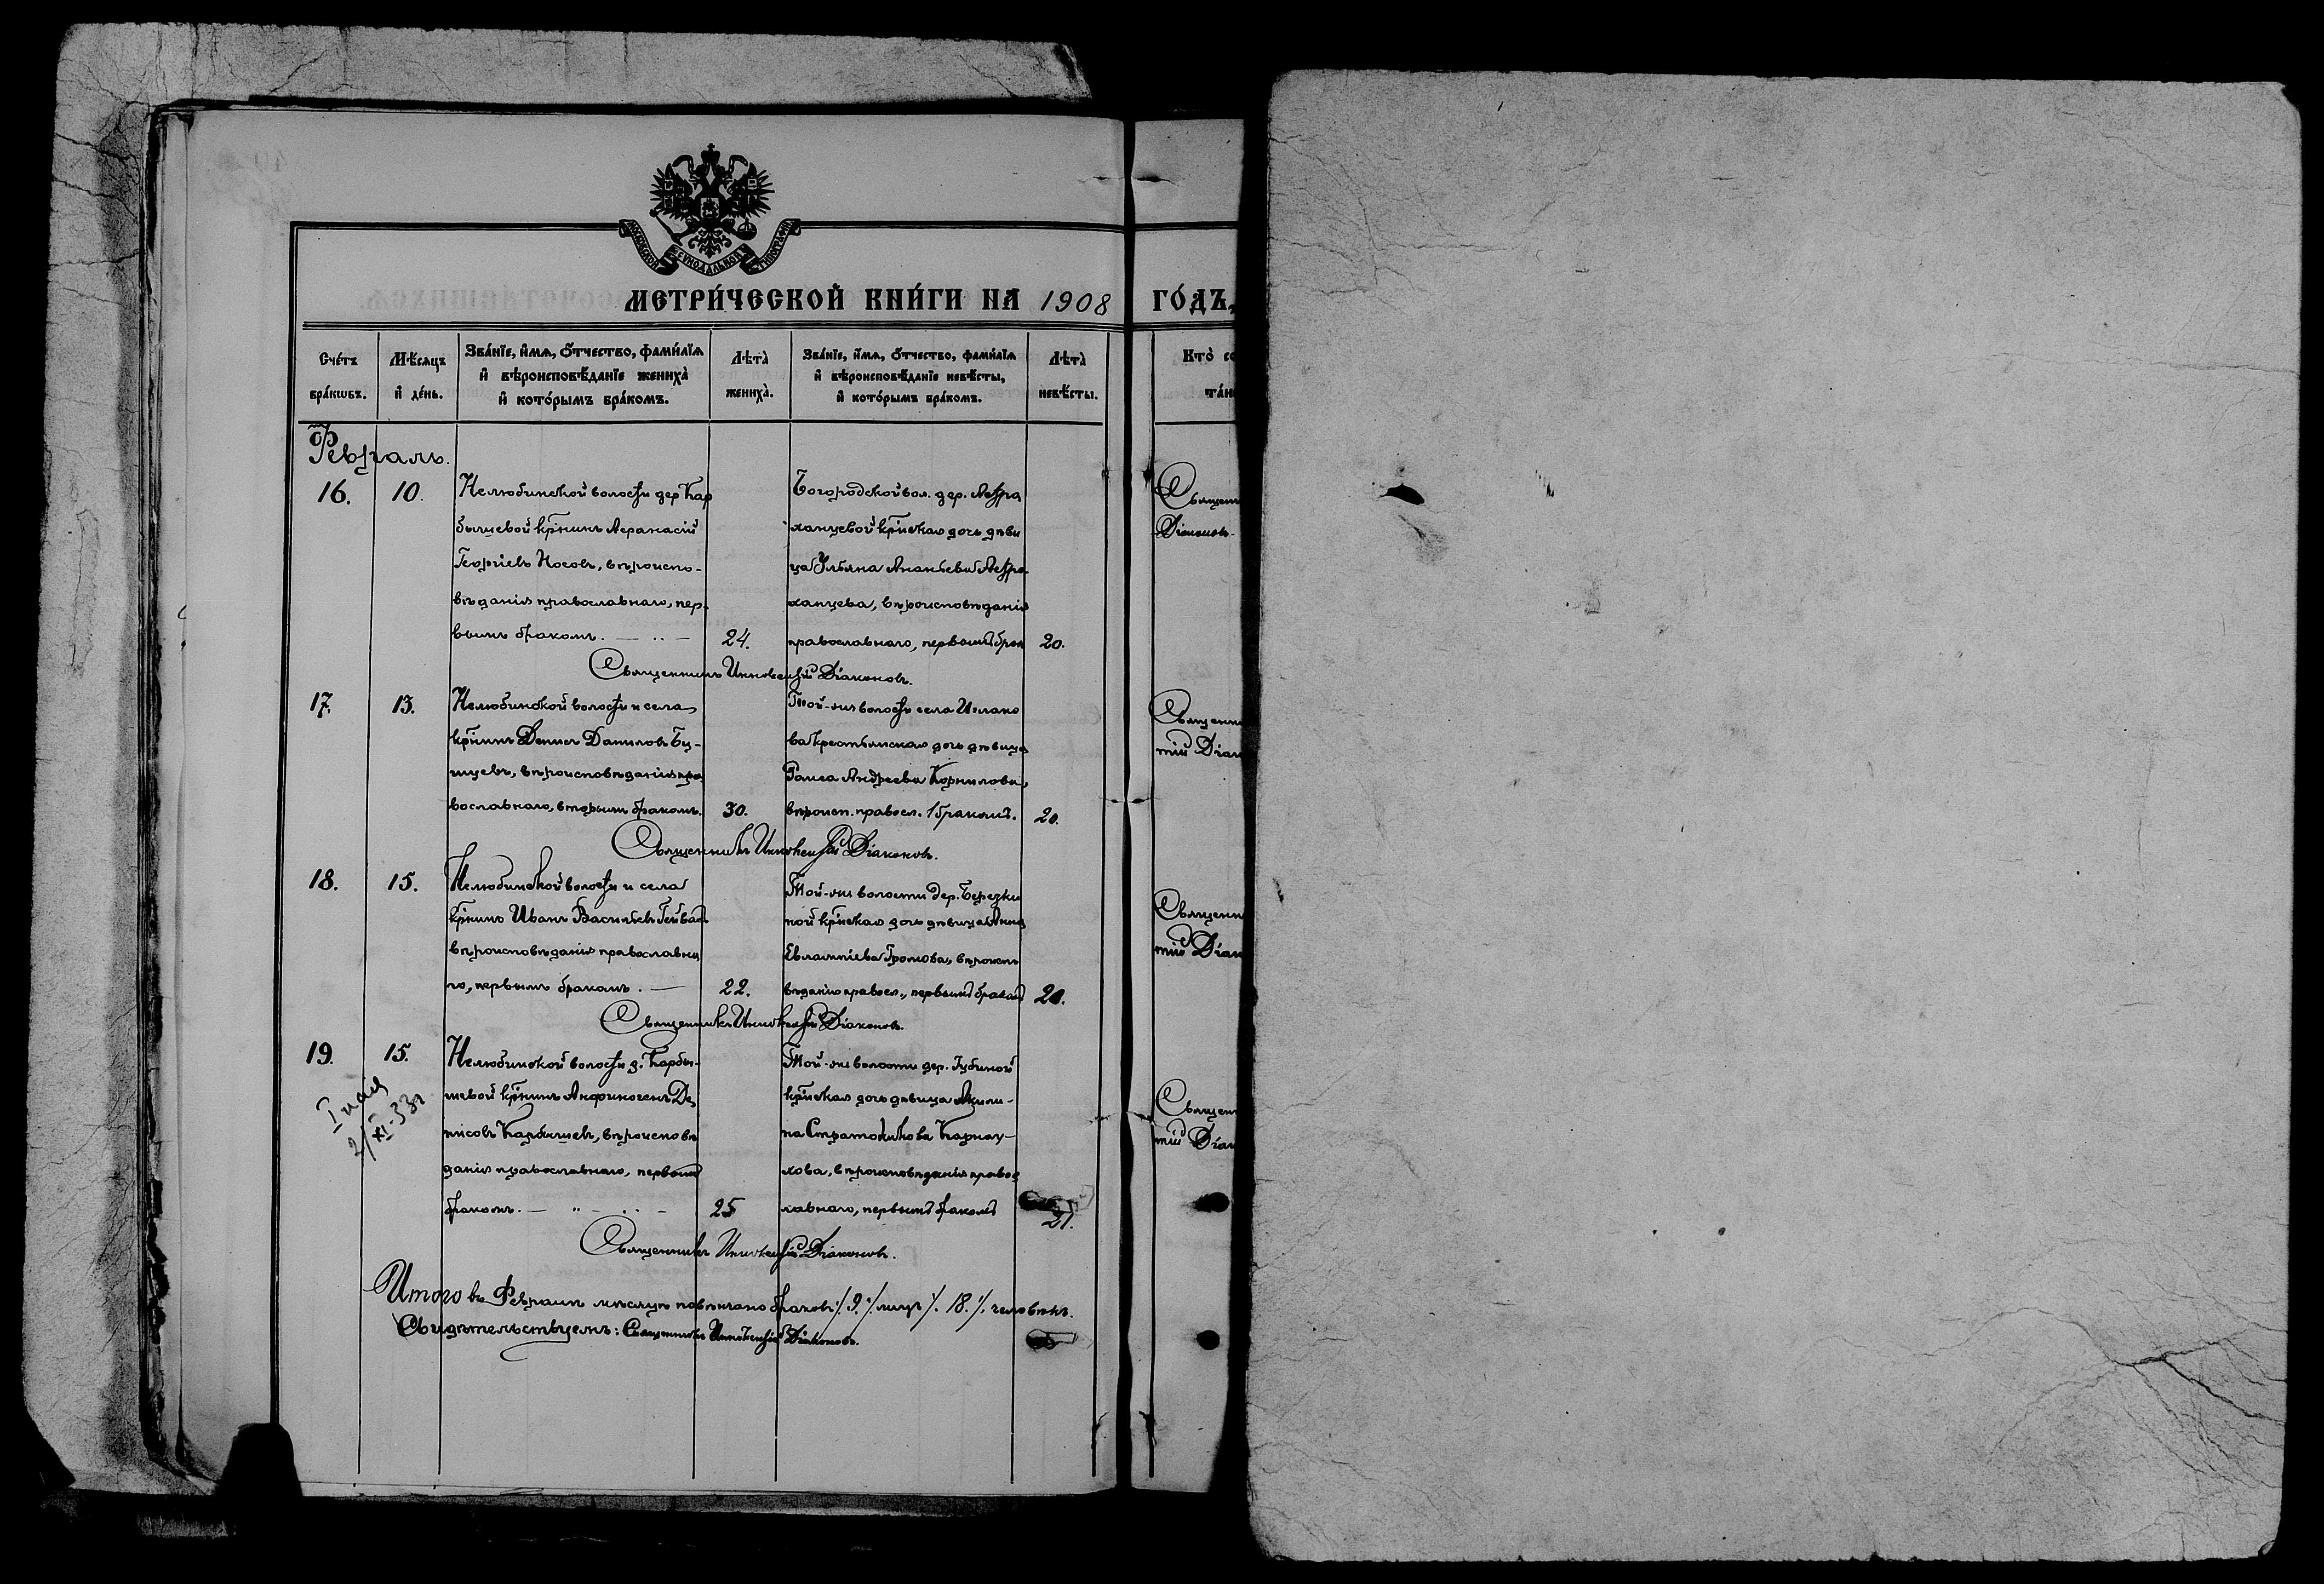 МОСКОВСКОЙ СѴНОДАЛЬНОЙ ТИПОГРАФІИ
МЕТРИ́ЧЕСКОЙ КНИ́ГИ НА 1908 ГО́ДЪ,
Сче́тъ бра́кѡвъ.
Мѣ́сяцъ и҆ де́нь.
Зва́нїе, и҆́мѧ, ѻ҆́тчество, фами́лїѧ и҆ вѣроисповѣ́данїе жениха̀ и҆ кото́рымъ бра́комъ.
Лѣта̀ жениха̀.
Зва́нїе, и҆́мѧ, ѻ҆́тчество, фами́лїѧ и҆ вѣроисповѣ́данїе невѣ́сты, и҆ кото́рымъ бра́комъ.
Лѣта̀ невѣ́сты.
Кто̀ со
Февраль.
16. 10.
Нелюбинской волости дер. Кар
бышевой кр͞нинъ Аѳанасій
Георгіевъ Носовъ, вѣроиспо-
вѣданія православнаго, пер-
вымъ бракомъ. 24.
Богородской вол. дер. Астра
ханцевой кр͞нская дочь дѣви
ца Ульяна Ананьева Астра-
ханцева, вѣроисповѣданія
православнаго, первымъ брак 20.
Священ
Діаконовъ.
Священникъ Иннокентій Діаконовъ.
17. 13.
Нелюбинской волости и села
кр͞нинъ Денисъ Даниловъ
вѣроисповѣданія пра
вославнаго, вторымъ бракомъ. 30.
Той-же волости села
ва крестьянская дочь дѣвица
Раиса Андреева Корнилова,
вѣроисп. правосл. 1 бракомъ. 20.
Священни
тій Діак
Священникъ Иннокентій Діаконовъ.
18. 15.
Нелюбинской волости и села
кр͞нинъ Иванъ Васильевъ
вѣроисповѣданія православна
го, первымъ бракомъ. 22.
Той-же волости дер. Березки
ной кр͞нская дочь дѣвица Анна
Евлампіева Громова, вѣроиспо
вѣданія правосл., первымъ бракомъ 20.
Священн
тій Діак
Священникъ Иннокентій Діаконовъ.
19. 15.
Нелюбинской волости д. Карбы-
шевой кр͞нинъ Анфиногенъ Де
нисовъ Карбышевъ, вѣроисповѣ
данія православнаго, первымъ
бракомъ. 25
Той-же волости дер. Губиной
кр͞нская дочь дѣвица Акили-
на Стратоникова Карнау-
хова, вѣроисповѣданія правос
лавнаго, первымъ бракомъ 21.
Священ
тій Діак
Священникъ Иннокентій Діаконовъ.
Итого въ Февралѣ мѣсяцѣ повѣнчано браковъ /9./ лицъ /. 18./. человѣкъ.
Свидѣтельствуемъ: Священникъ Иннокентій Діаконовъ.